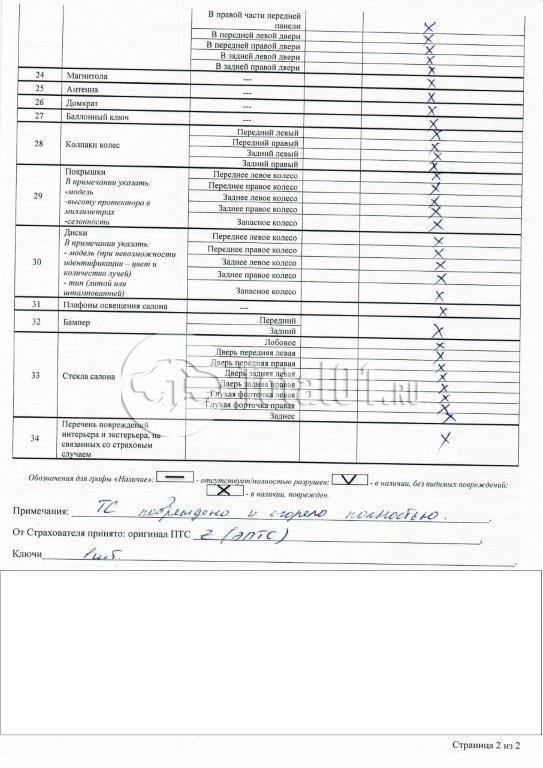 В правой части передней
панели X
В передней левой двери X
В передней правой двери X
В задней левой двери X
В задней правой двери X
24 Магнитола --- X
25 Антенна --- X
26 Домкрат --- X
27 Баллонный ключ --- X
28 Колпаки колес
Передний левый X
Передний правый X
Задний левый X
Задний правый X
29 Покрышки
В примечании указать:
-модель
-высоту протектора в
миллиметрах
-сезонность
Переднее левое колесо X
Переднее правое колесо X
Заднее левое колесо X
Заднее правое колесо X
Запасное колесо X
30 Диски
В примечании указать:
- модель (при невозможности
идентификации – цвет и
количество лучей)
- тип (литой или
штампованный)
Переднее левое колесо X
Переднее правое колесо X
Заднее левое колесо X
Заднее правое колесо X
Запасное колесо X
31 Плафоны освещения салона --- X
32 Бампер
Передний
Задний X
33 Стекла салона
Лобовое X
Дверь передняя левая X
Дверь передняя правая X
Дверь задняя левая X
Дверь задняя правая X
Глухая форточка левая X
Глухая форточка правая X
Заднее X
34 Перечень повреждений
интерьера и экстерьера, не
связанных со страховым
случаем X
total01.ru
Обозначения для графы «Наличие»: — - отсутствует/полностью разрушен; V - в наличии, без видимых повреждений;
X - в наличии, поврежден.
Примечания: ТС повреждено и сгорело полностью.
От Страхователя принято: оригинал ПТС (ЭПТС)
Ключи 1 шт.
Страница 2 из 2